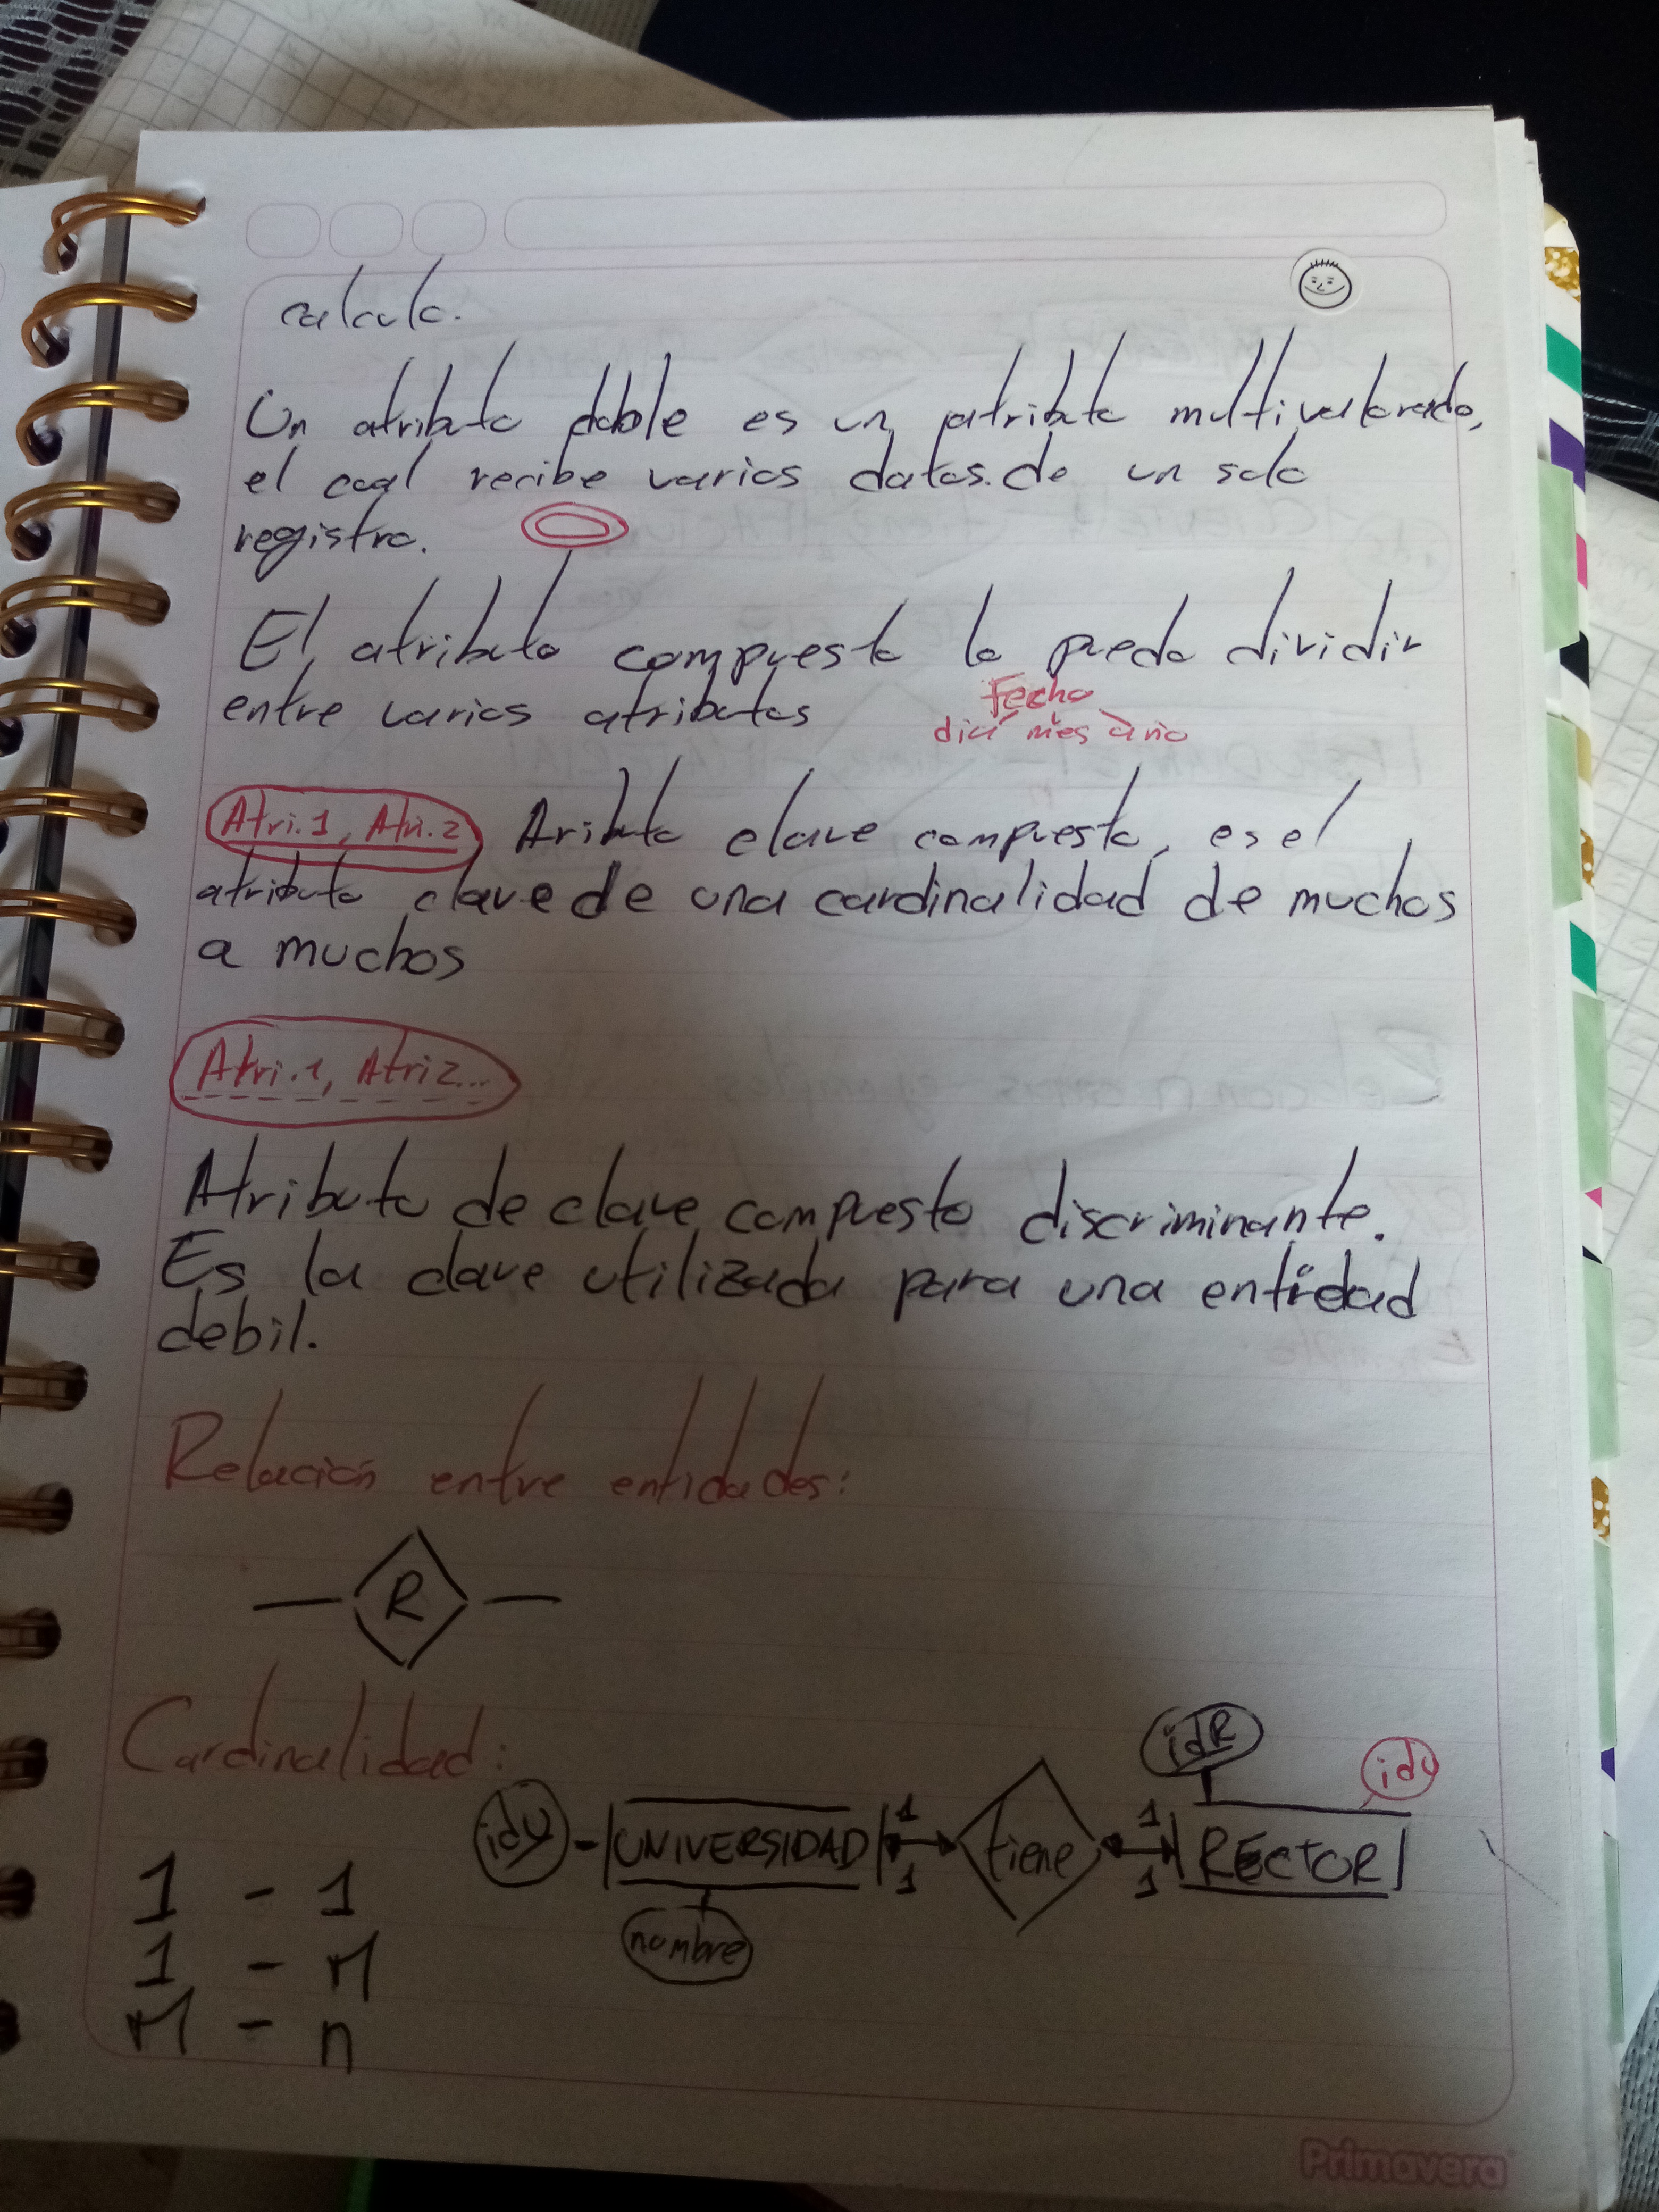 calculo.
Un atributo doble es un atributo multivalorado,
el cual recibe varios datos de un solo
registro.
El atributo compuesto lo puedo dividir
entre varios atributos
Fecha
dia mes año
Atri.1, Atri.2
Aributo clave compuesto, es el
atributo clave de una cardinalidad de muchos
a muchos
Atri.1, Atri2...
Atributo de clave compuesto discriminante.
Es la clave utilizada para una entidad
debil.
Relación entre entidades:
R
Cardinalidad:
idR
idU
idU UNIVERSIDAD 1 1 tiene 1 1 RECTOR
nombre
1 - 1
1 - M
M - n
Primavera